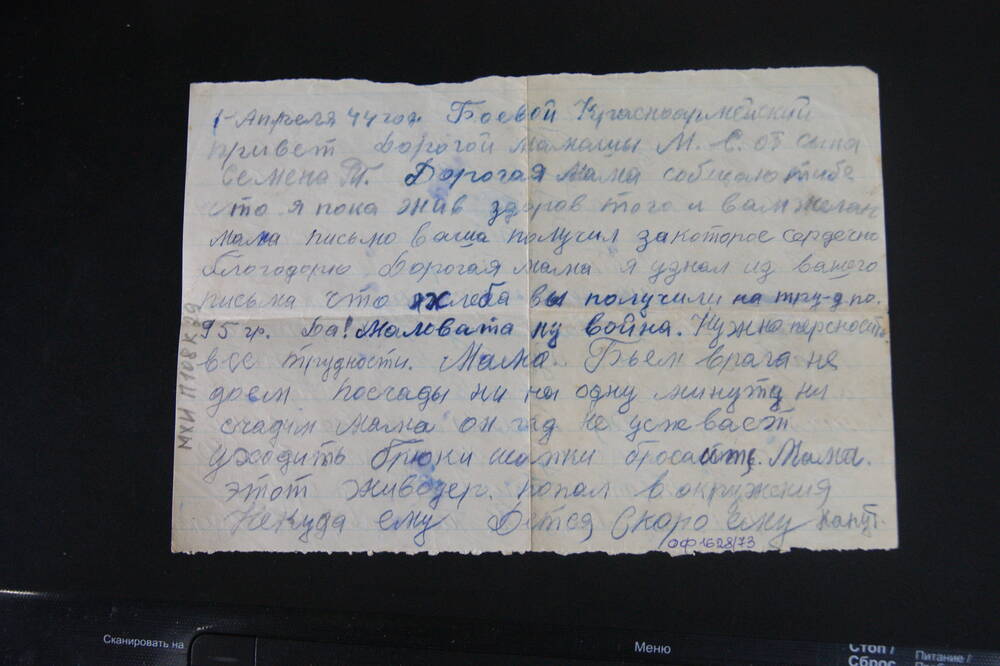 1-Апреля 44 год Боевой Красноармейский
привет Дорогой мамашы М. С. от сына
Семена Т. Дорогая мама собщаю тибе
что я пока жив здоров того и вам желаю
мама письмо ваша получил за которое сердечно
благодорю Дорогая мама я узнал из вашего
письма что хлеба вы получили на тру-д по.
95 гр. Да! Маловата ну война. Нужно переность
все трудности. Мама. Бьем врага не
даем посчады ни на одну минуту ни
счадим мама он гад не успевает
уходить брюки шапки бросаить. Мама.
этот живодер. попал в окружения
Некуда ему Детса Скоро ему капут.
МКИ П 108 К 29
ОФ 1628/73
Сканировать на
Меню
Стоп /
Сброс
Питание /